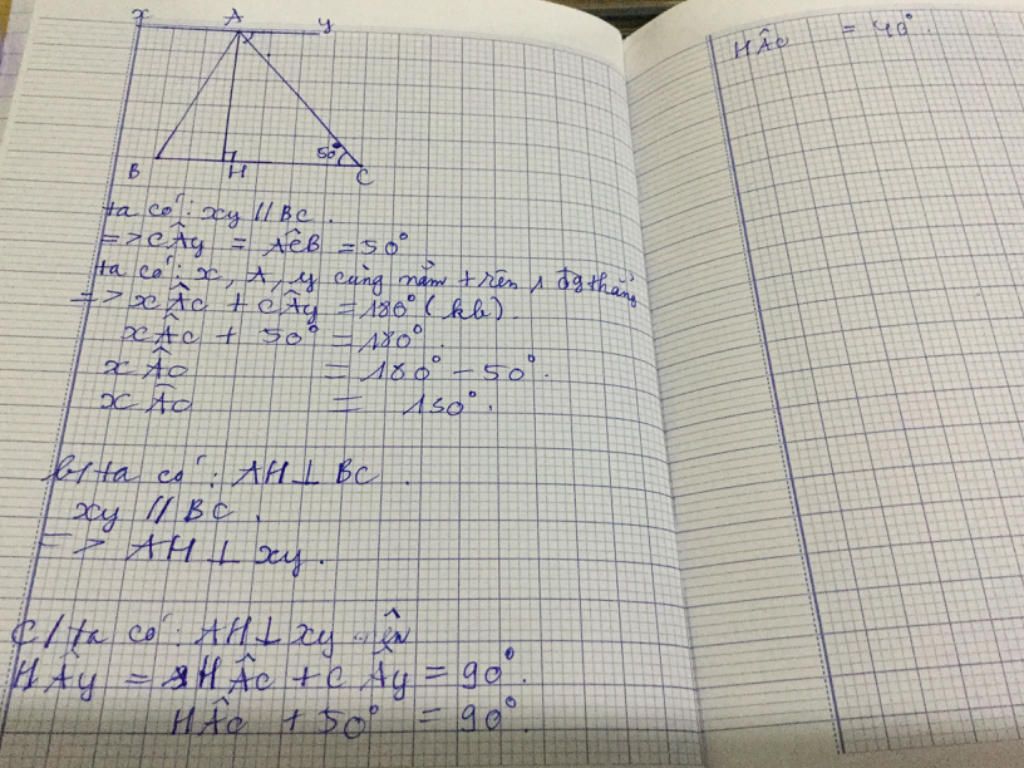 x A y
50°
B H C
ta có: xy // BC.
=> CÂy = AĈB = 50°
ta có: x, A, y cùng nằm trên 1 đg thẳng
=> xÂc + cÂy = 180° (kb).
xÂc + 50° = 180°.
xÂc = 180° - 50°.
xÂc = 130°.
b/ ta có: AH ⊥ BC.
xy // BC.
=> AH ⊥ xy.
c/ ta có: AH ⊥ xy nên
HÂy = HÂc + cÂy = 90°.
HÂc + 50° = 90°.
HÂc = 40°.